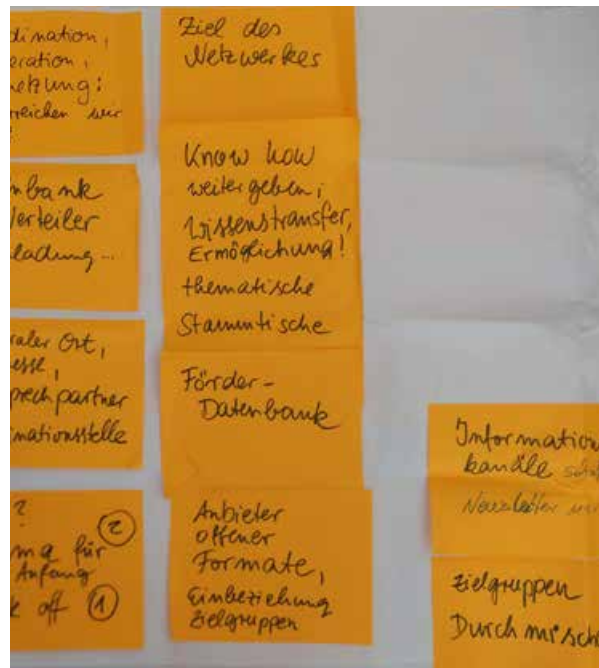 dination,
eration,
netzung:
rreichen wir
?
nbank
Verteiler
ladung...
raler Ort,
esse,
prechpartner
inationsstelle
?
ma für ②
Anfang
k off ①
Ziel des
Netzwerkes
Know how
weitergeben,
Wissenstransfer,
Ermöglichung!
thematische
Stammtische
Förder-
Datenbank
Anbieter
offener
Formate,
Einbeziehung
Zielgruppen
Information
kanäle
Newsletter
Zielgruppen
Durchmisch